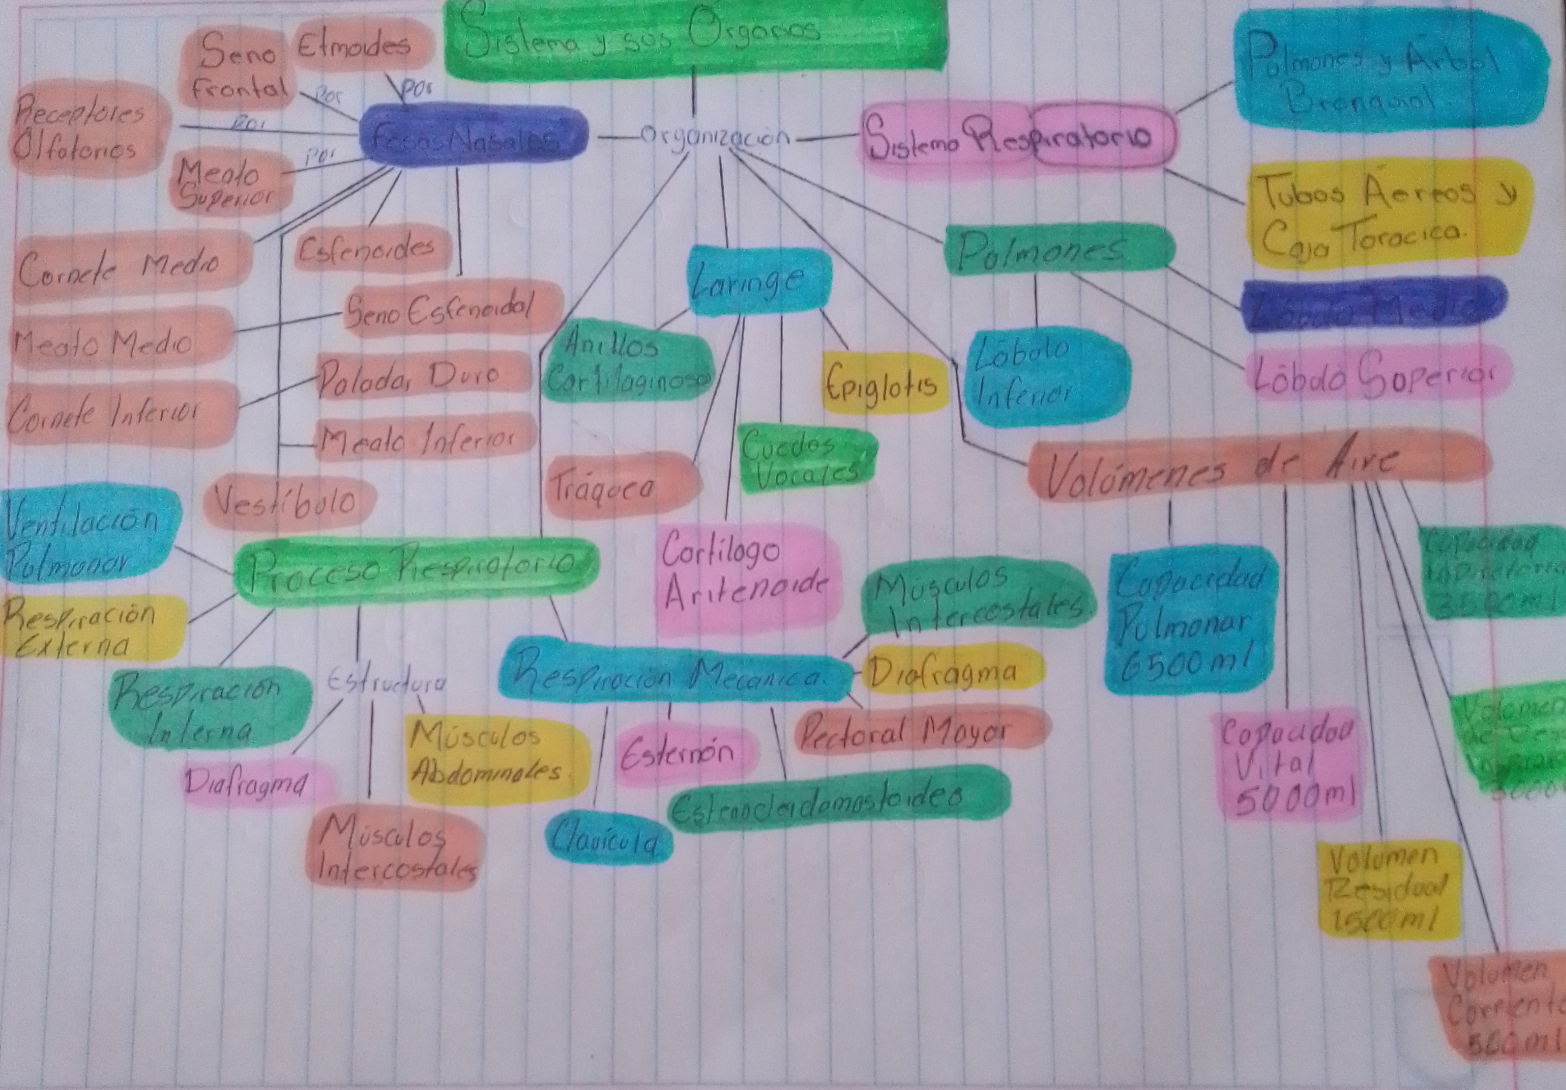 Sistema y sus Órganos
Seno
Frontal
Etmoides
Por
Por
Receptores
Olfatorios
Por
Meato
Superior
Por
Fosas Nasales
Organización
Sistema Respiratorio
Pulmones y Árbol
Bronquial
Tubos Áereos y
Caja Toracica.
Cornete Medio
Esfenoides
Seno Esfenoidal
Meato Medio
Paladar Duro
Cornete Inferior
Meato Inferior
Vestíbulo
Laringe
Anillos
Cartilaginoso
Epiglotis
Tráquea
Cuedas
Vocales
Cartílago
Aritenoide
Pulmones
Lóbulo Medio
Lóbulo
Inferior
Lóbulo Superior
Volúmenes de Aire
Capacidad
Pulmonar
6500ml
Capacidad
Vital
5000ml
Capacidad
Inspiratoria
3500ml
Volumen
Volumen
Residual
1500ml
Volumen
Corriente
500ml
Ventilación
Pulmonar
Proceso Respiratorio
Respiración
Externa
Respiración
Interna
Estructura
Diafragma
Músculos
Abdominales.
Músculos
Intercostales
Respiración Mecánica.
Músculos
Intercostales
Diafrágma
Pectoral Mayor
Esternón
Clavícula
Esternocleidomastoideo